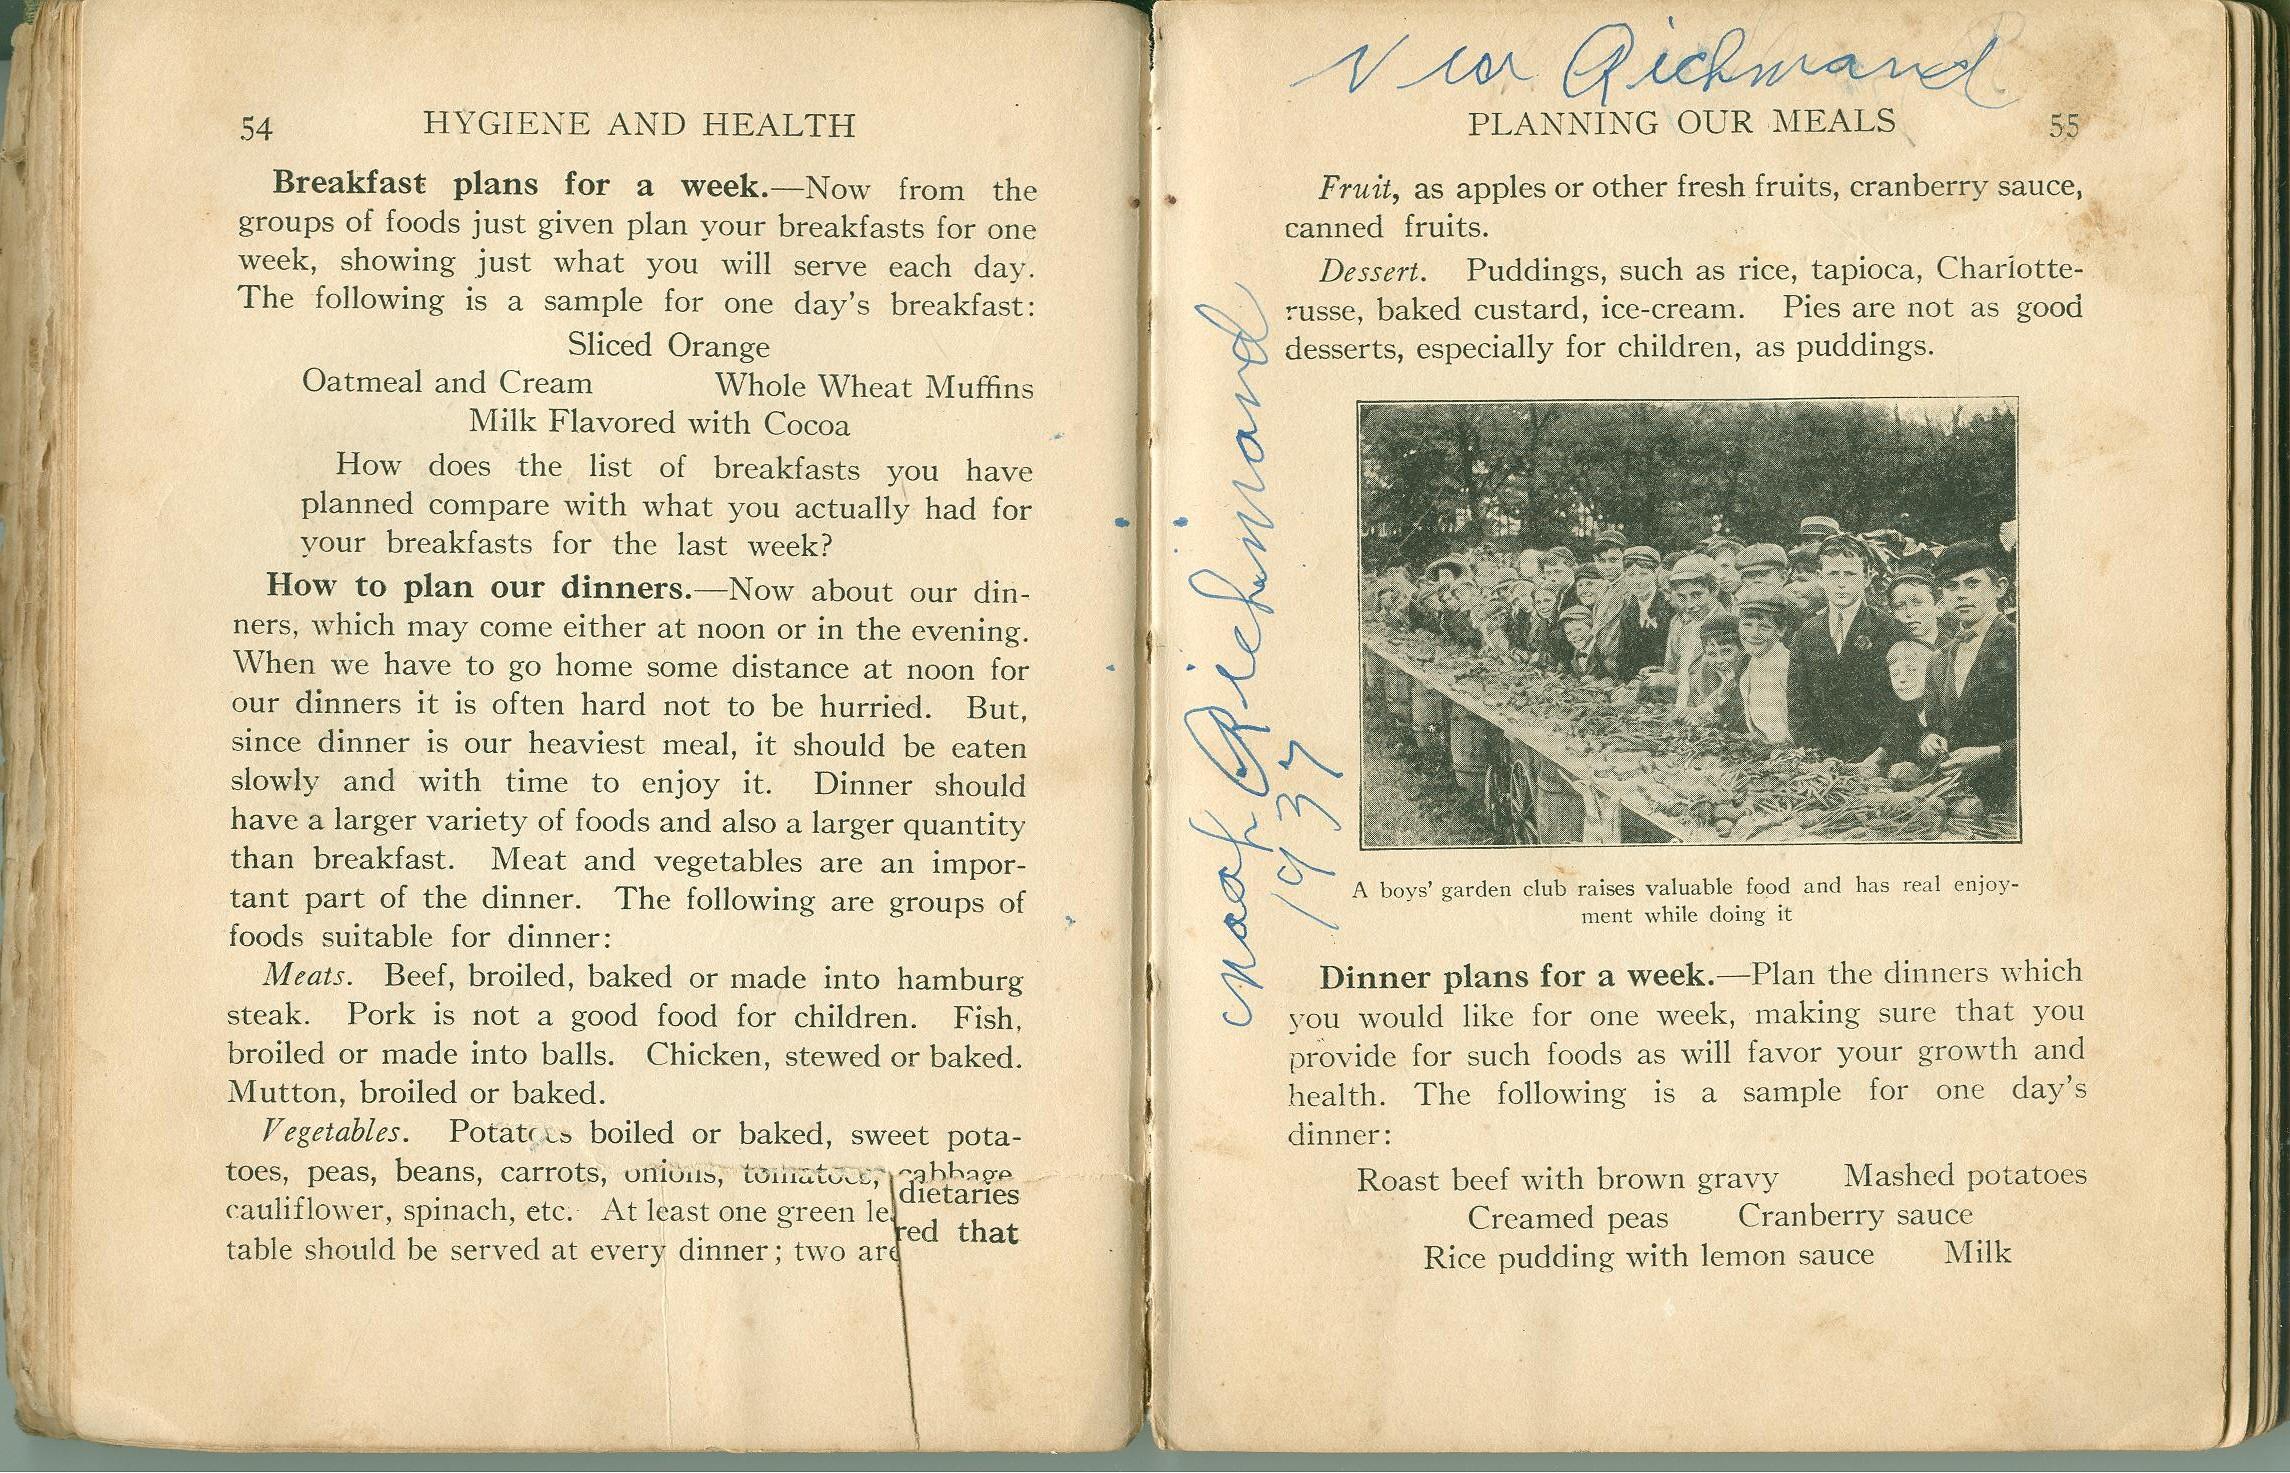 54 HYGIENE AND HEALTH
Breakfast plans for a week.—Now from the
groups of foods just given plan your breakfasts for one
week, showing just what you will serve each day.
The following is a sample for one day's breakfast:
Sliced Orange
Oatmeal and Cream Whole Wheat Muffins
Milk Flavored with Cocoa
How does the list of breakfasts you have
planned compare with what you actually had for
your breakfasts for the last week?
How to plan our dinners.—Now about our din-
ners, which may come either at noon or in the evening.
When we have to go home some distance at noon for
our dinners it is often hard not to be hurried. But,
since dinner is our heaviest meal, it should be eaten
slowly and with time to enjoy it. Dinner should
have a larger variety of foods and also a larger quantity
than breakfast. Meat and vegetables are an impor-
tant part of the dinner. The following are groups of
foods suitable for dinner:
Meats. Beef, broiled, baked or made into hamburg
steak. Pork is not a good food for children. Fish,
broiled or made into balls. Chicken, stewed or baked.
Mutton, broiled or baked.
Vegetables. Potatoes boiled or baked, sweet pota-
toes, peas, beans, carrots, onions, tomatoes, cabbage
dietaries
cauliflower, spinach, etc. At least one green
red that
table should be served at every dinner; two are
Richmand
PLANNING OUR MEALS 55
Fruit, as apples or other fresh fruits, cranberry sauce,
canned fruits.
Dessert. Puddings, such as rice, tapioca, Charlotte-
russe, baked custard, ice-cream. Pies are not as good
desserts, especially for children, as puddings.
Richmond
1937
A boys' garden club raises valuable food and has real enjoy-
ment while doing it
Dinner plans for a week.—Plan the dinners which
you would like for one week, making sure that you
provide for such foods as will favor your growth and
health. The following is a sample for one day's
dinner:
Roast beef with brown gravy Mashed potatoes
Creamed peas Cranberry sauce
Rice pudding with lemon sauce Milk